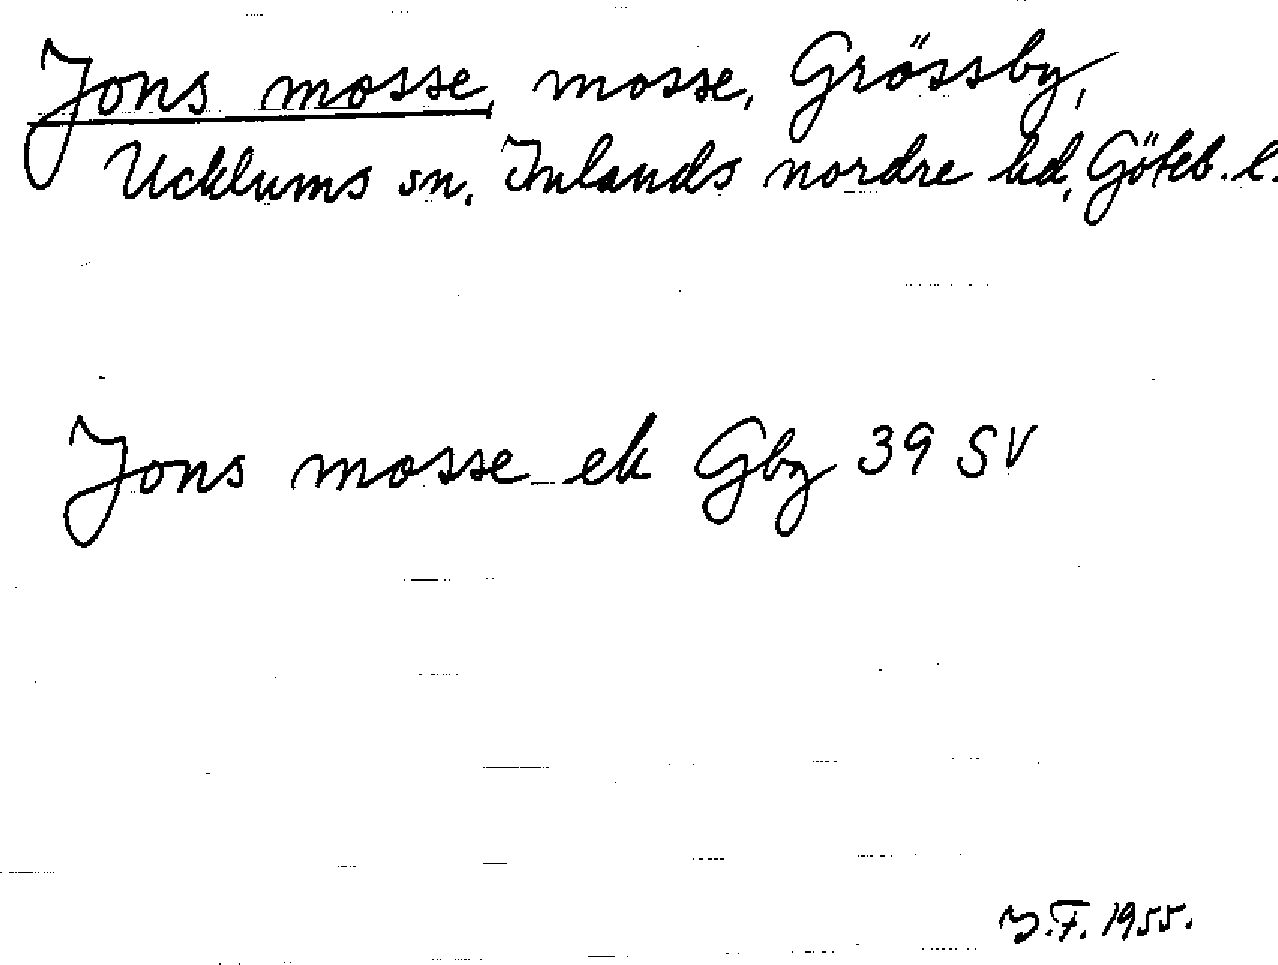 Jons mosse, mosse, Grössby,
Ucklums sn, Inlands nordre hd, Göteb. l.
Jons mosse ek Gby 39 SV
J.F. 1955.